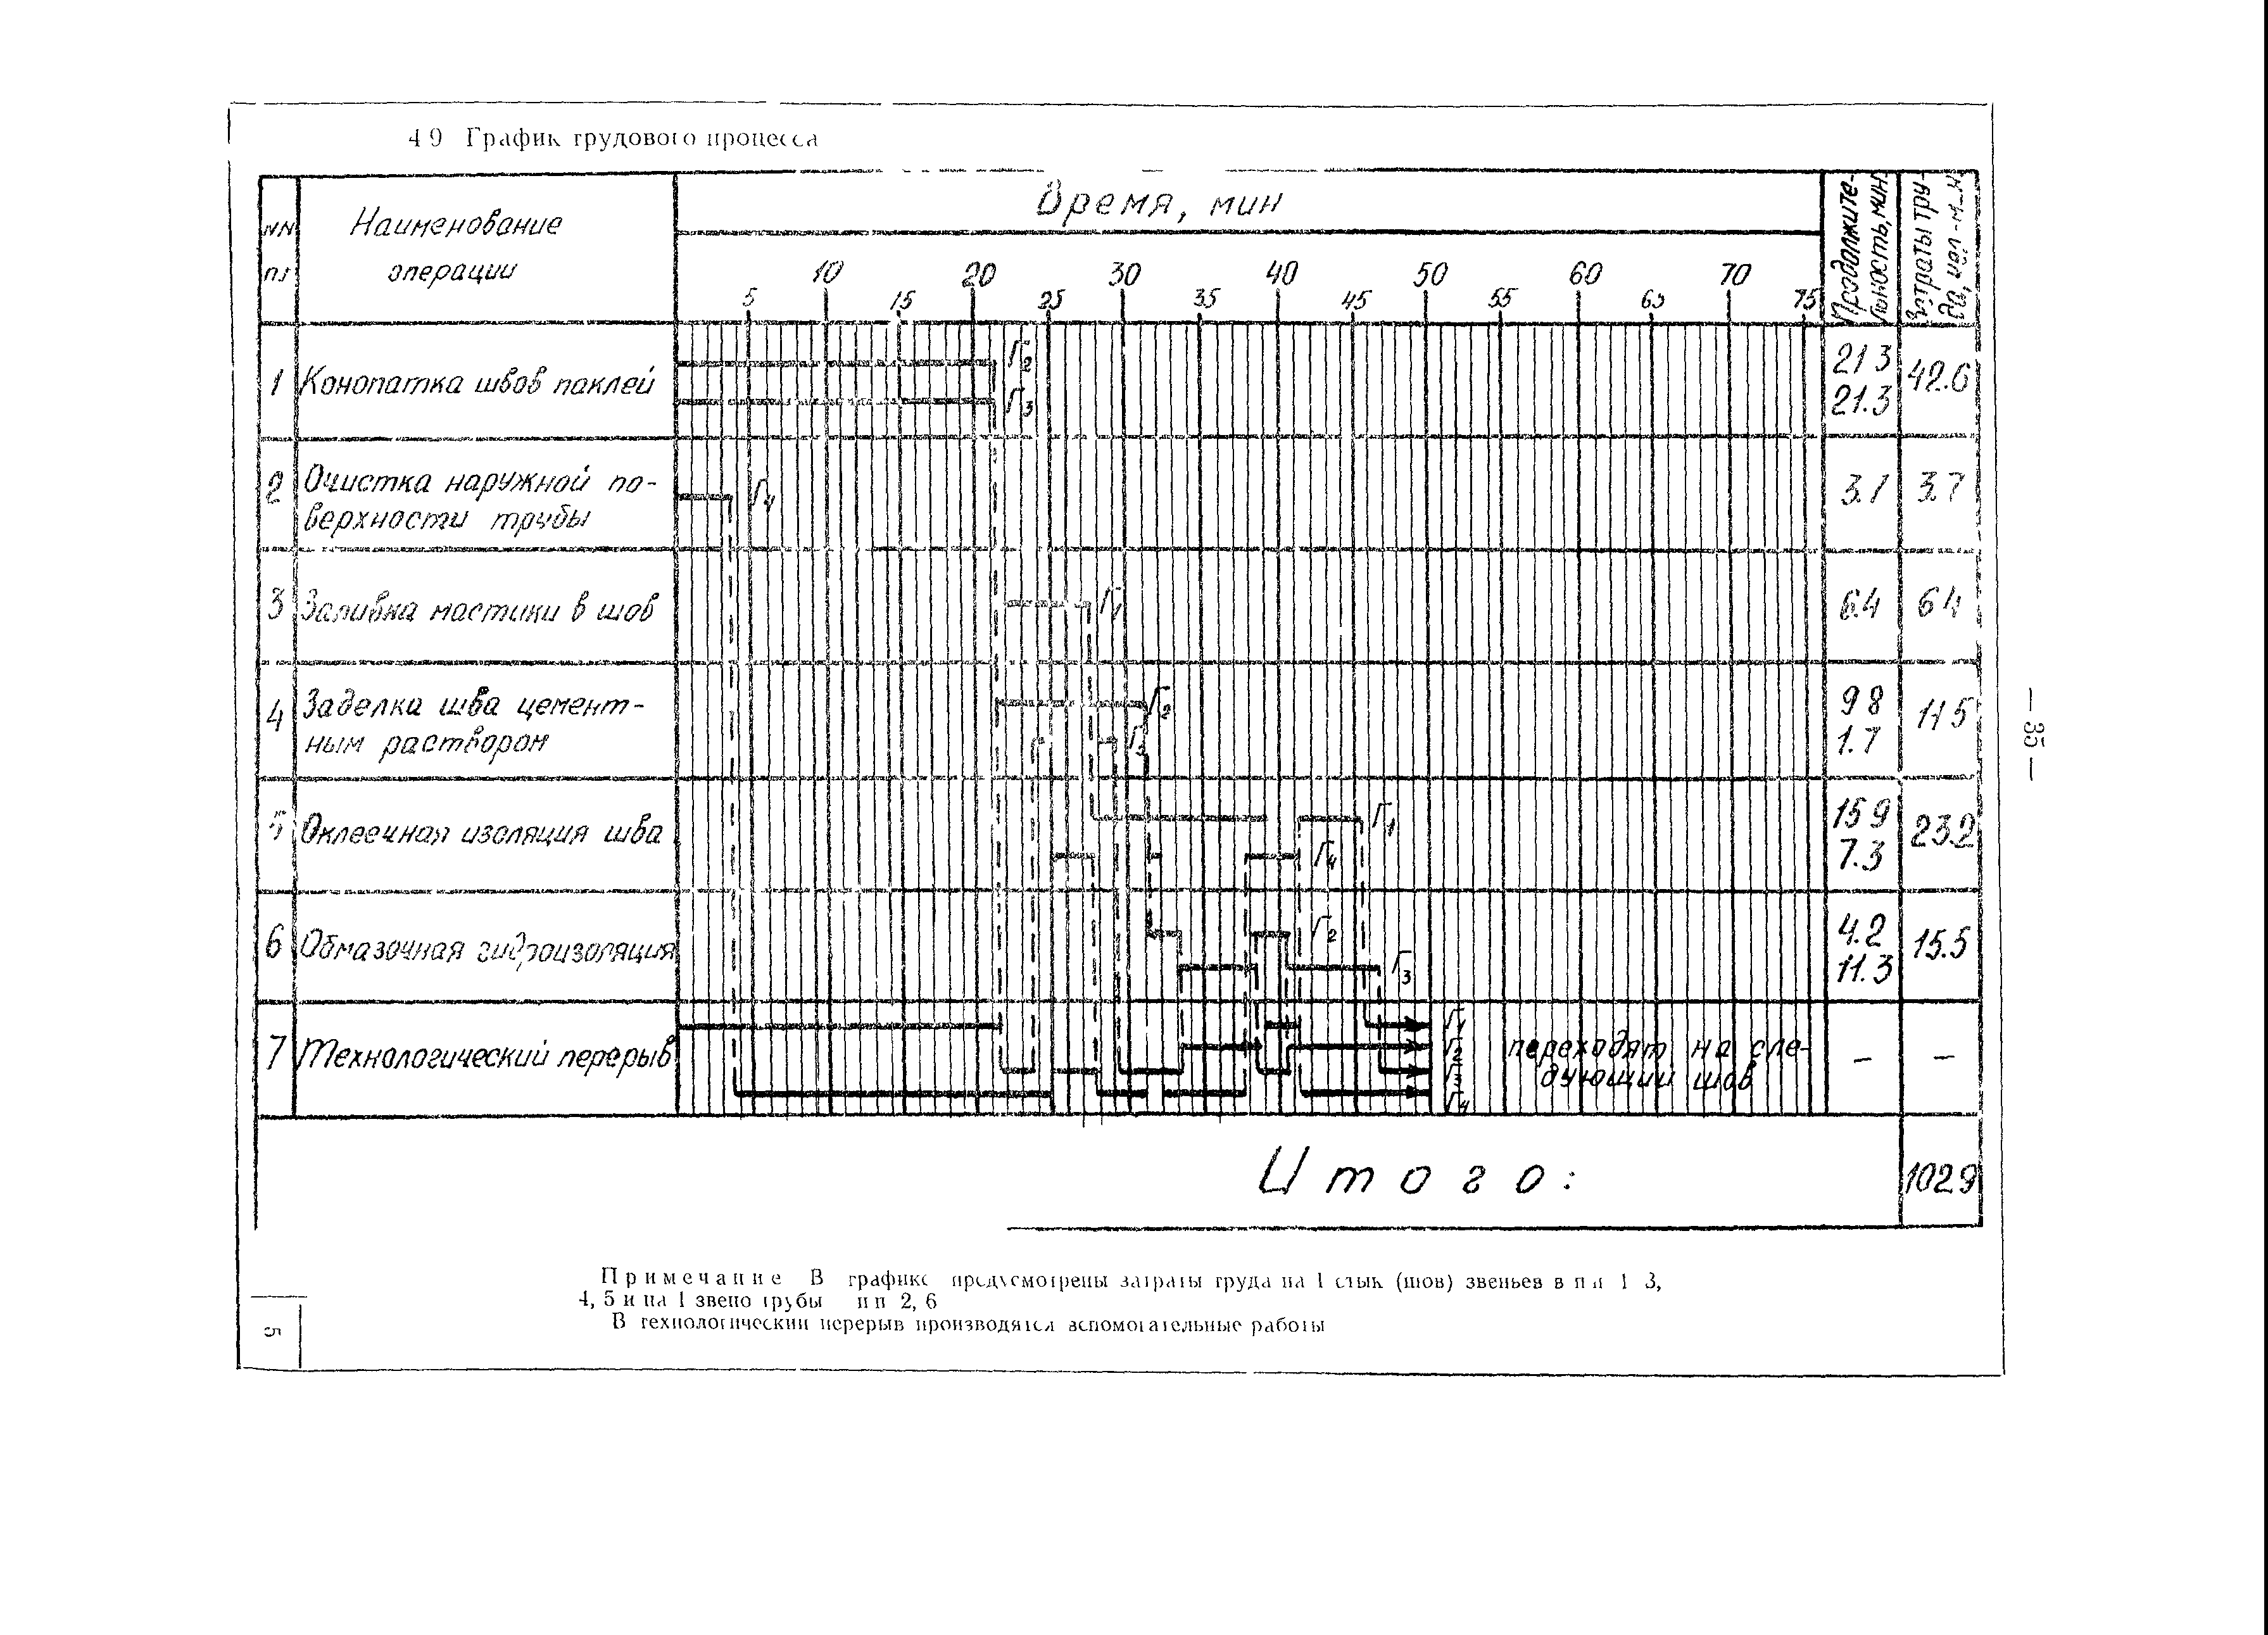 4 9 График трудового процесса
NN
пп
Наименование
операции
Время, мин
Продолжите-
льность, мин.
Затраты тру-
да, чел-мин
10 20 30 40 50 60 70
5 15 25 35 45 55 65 75
1 Конопатка швов паклей Г2 Г3 21 3 21.3 42.6
2 Очистка наружной по-
верхности трубы Г4 3.7 3.7
3 Заливка мастики в шов Г1 6.4 6 4
4 Заделка шва цемент-
ным раствором Г2 Г3 9 8 1.7 11 5
5 Оклеечная изоляция шва Г1 Г4 15 9 7.3 23.2
6 Обмазочная гидроизоляция Г2 Г3 4.2 11.3 15.5
7 Технологический перерыв Г1 Г2 Г3 Г4 переходят на сле-
дующий шов – –
Итого: 102 9
Примечание В графике предусмотрены затраты труда на 1 стык (шов) звеньев в п п 1 3,
4, 5 и на 1 звено трубы п п 2, 6
В технологический перерыв производятся вспомогательные работы
5
— 35 —